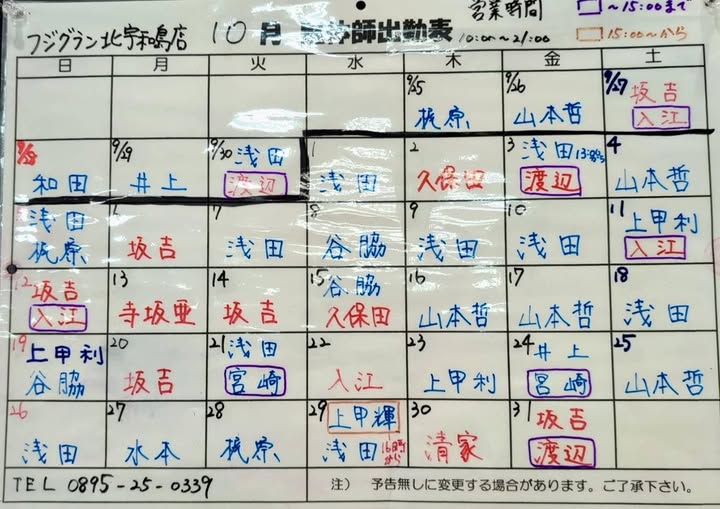 フジグラン北宇和島店 10月 師出勤表 営業時間 10:00〜21:00
〜15:00まで
15:00〜から
日 月 火 水 木 金 土
9/25 9/26 9/27 坂吉
梶原 山本哲 入江
9/28 9/29 9/30 浅田 1 2 3 浅田 4
和田 井上 渡辺 浅田 久保田 渡辺 山本哲
浅田 6 7 8 9 10 11 上甲利
梶原 坂吉 浅田 谷脇 浅田 浅田 入江
12 坂吉 13 14 15 谷脇 16 17 18
入江 寺坂亜 坂吉 久保田 山本哲 山本哲 浅田
19 上甲利 20 21 浅田 22 23 24 井上 25
谷脇 坂吉 宮崎 入江 上甲利 宮崎 山本哲
26 27 28 29 上甲輝 30 31 坂吉
浅田 水本 梶原 浅田 清家 渡辺
TEL 0895-25-0339 注) 予告無しに変更する場合があります。ご了承下さい。